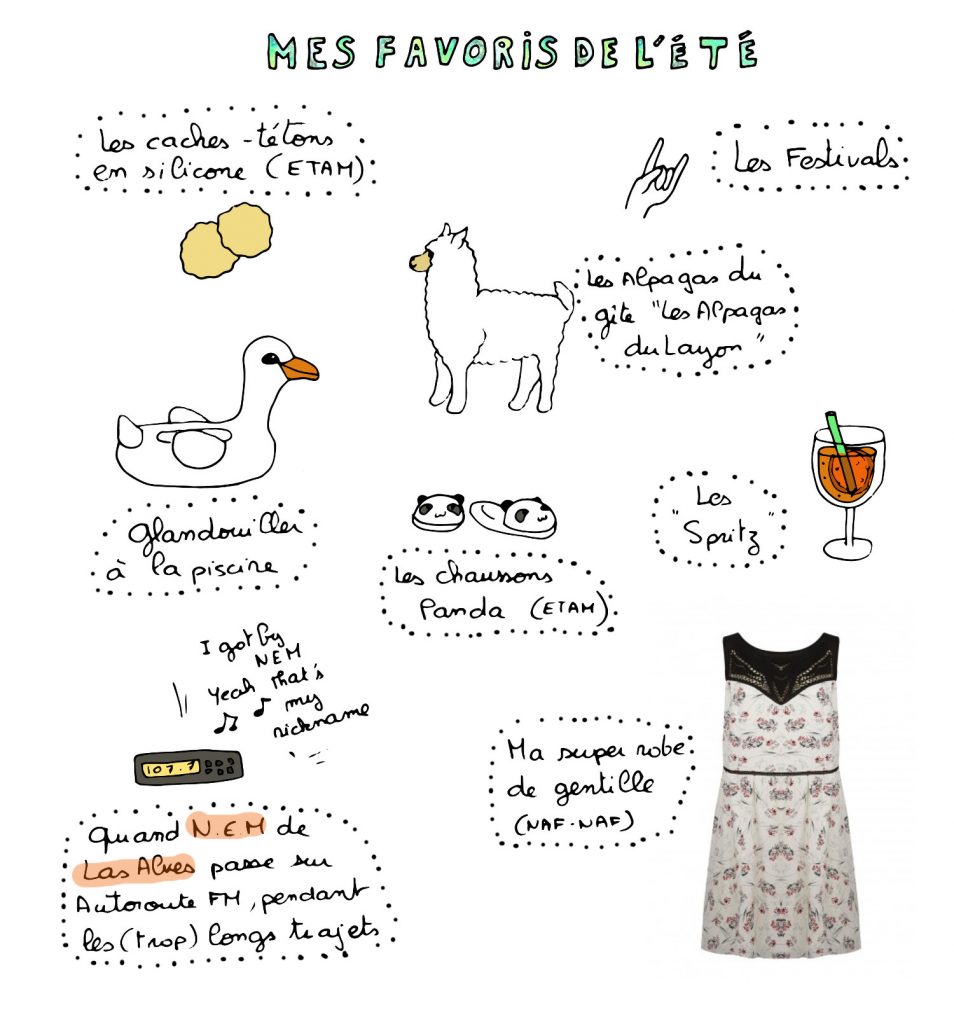 MES FAVORIS DE L'ÉTÉ
Les caches-tétons
en silicone (ETAM)
Les Festivals
Les Alpagas du
gîte "Les Alpagas
du Layon"
Glandouiller
à la piscine
Les chaussons
Panda (ETAM)
Les
"Spritz"
I got by
NEM
Yeah that's
my
nickname
107.7
Quand N.E.M de
Las Aves passe sur
Autoroute FM, pendant
les (trop) longs trajets
Ma super robe
de gentille
(NAF-NAF)